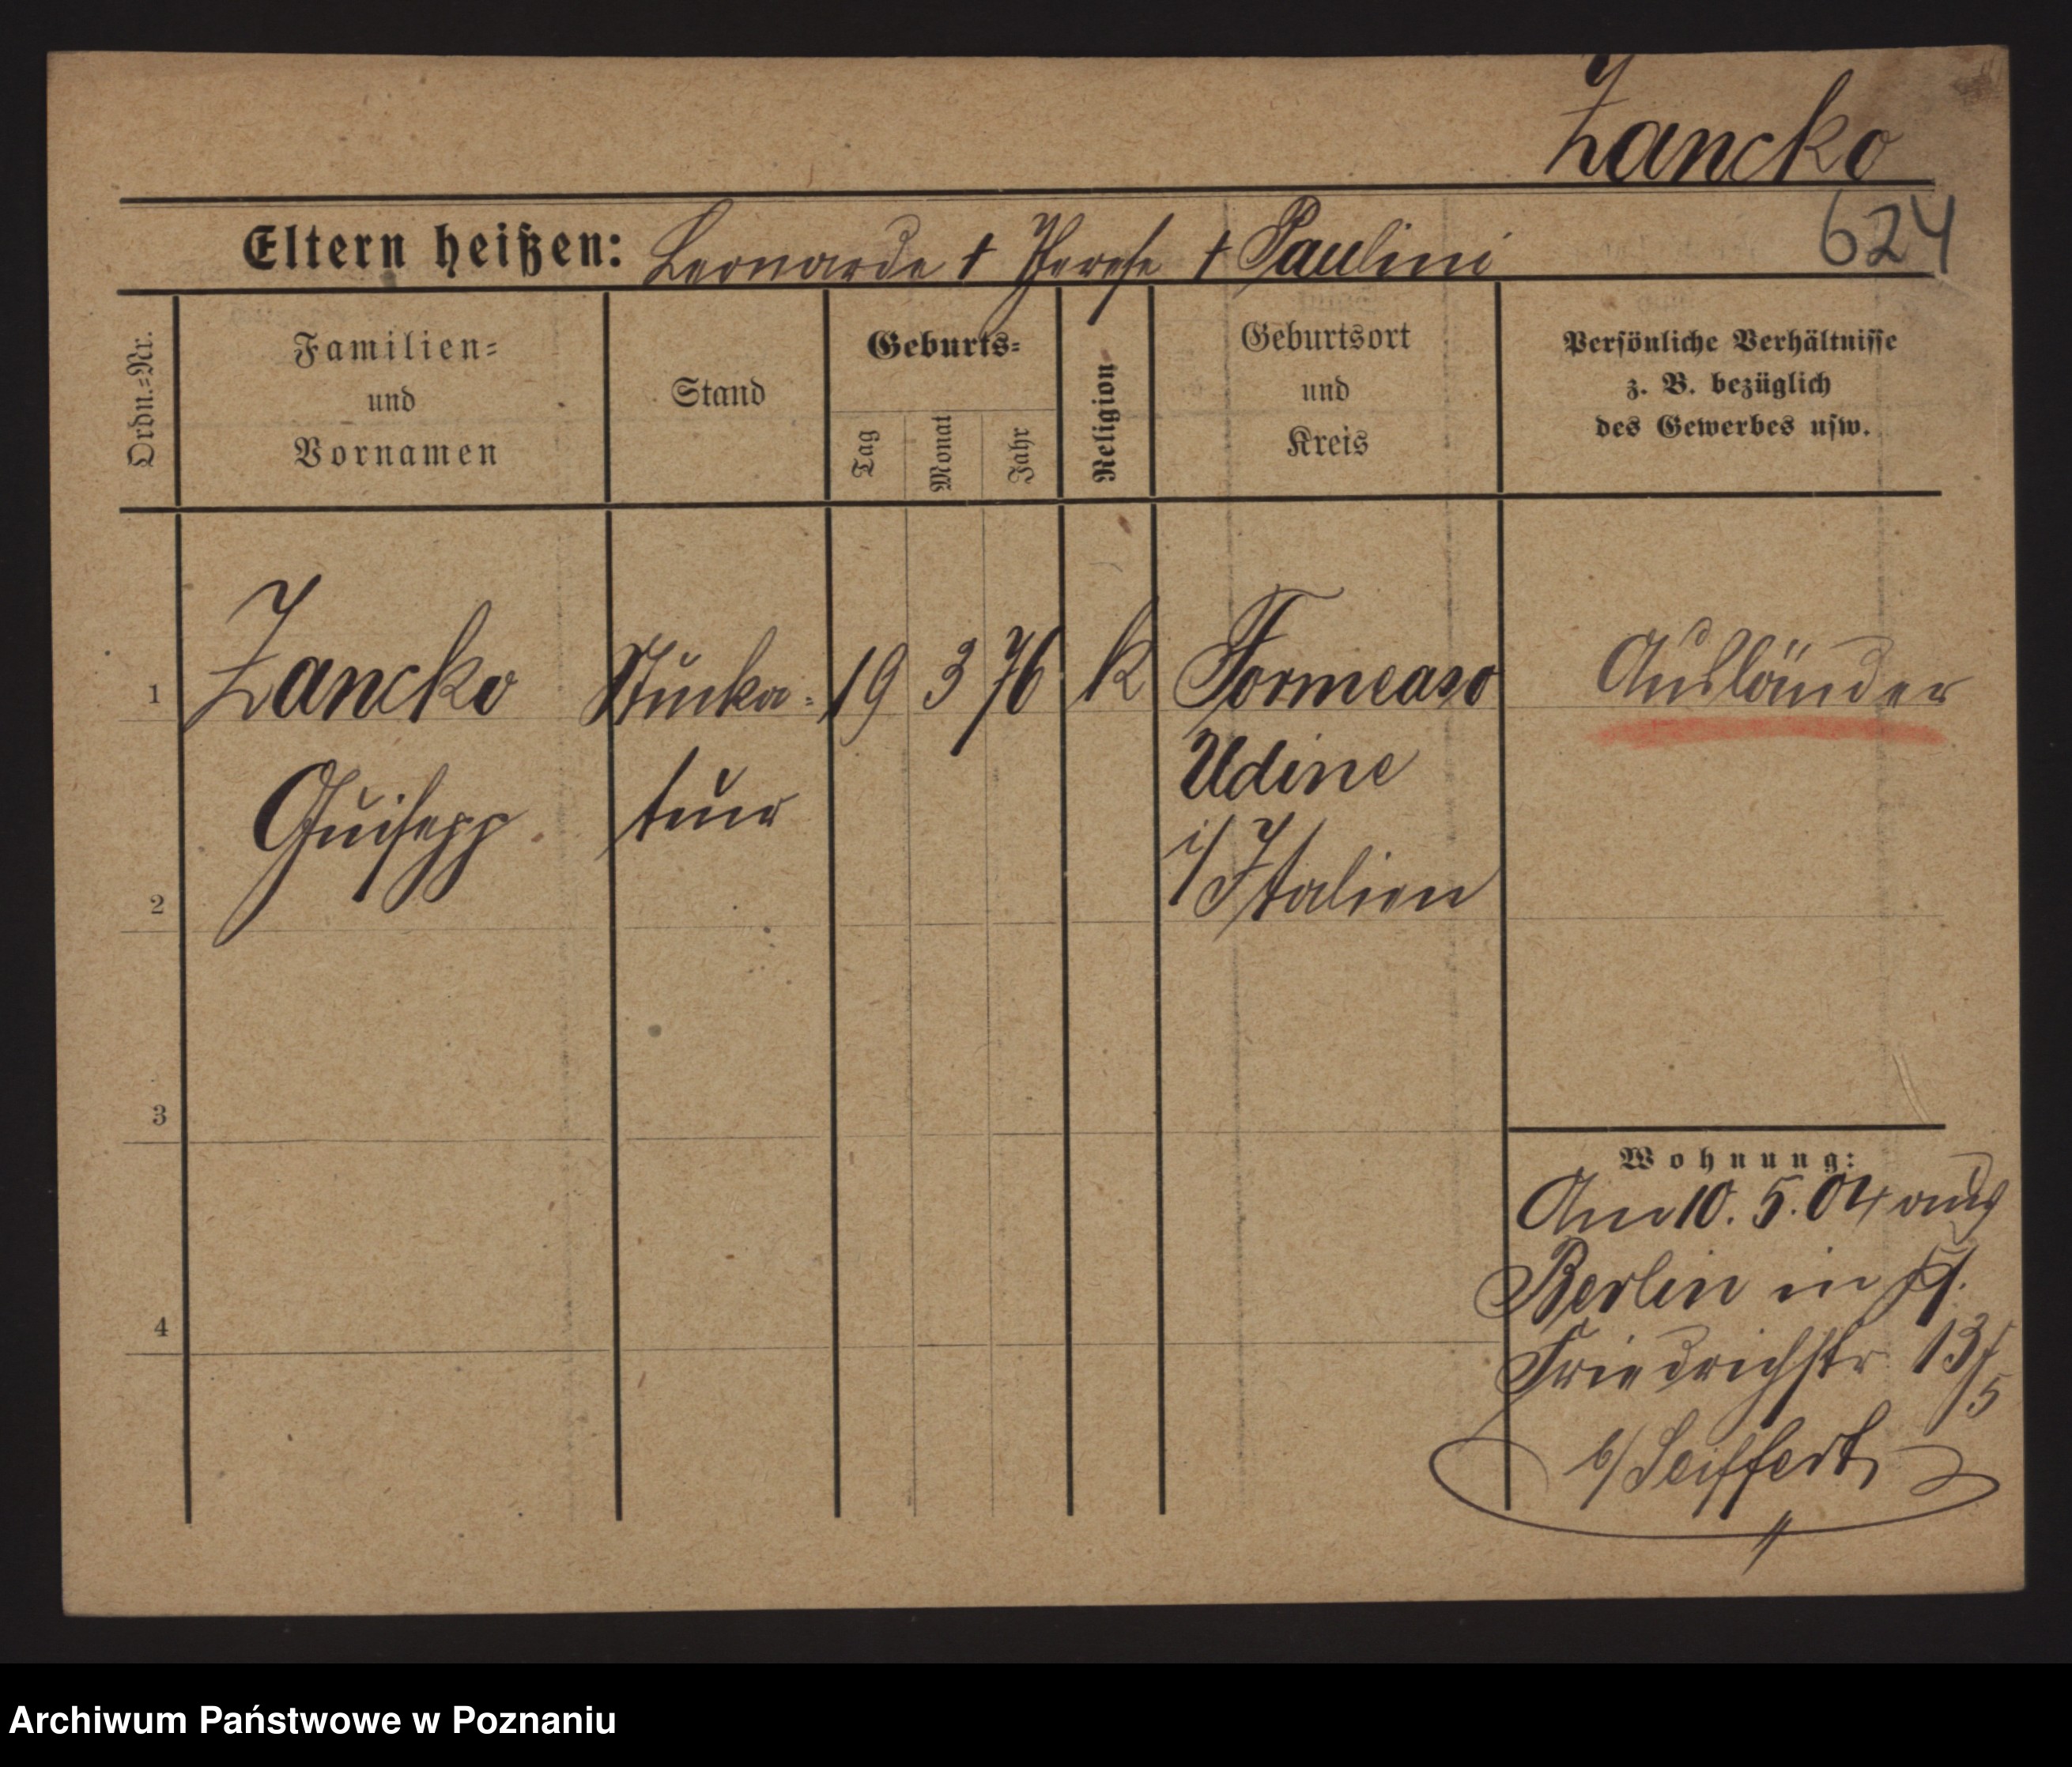 Zancko
624
Eltern heißen: Leonarde † Therese † Paulini
Ordn.-Nr.
Familien-
und
Vornamen
Stand
Geburts-
Tag
Monat
Jahr
Religion
Geburtsort
und
Kreis
Persönliche Verhältnisse
z. B. bezüglich
des Gewerbes usw.
1 Zancko Stucka- 19 3 76 k Formeaso Ausländer
Guisepp teur Udine
2 i/ Italien
3
4
Wohnung:
Am 10. 5. 04 aus
Berlin in
Friedrichstr. 13/5
b/ Seiffert
Archiwum Państwowe w Poznaniu